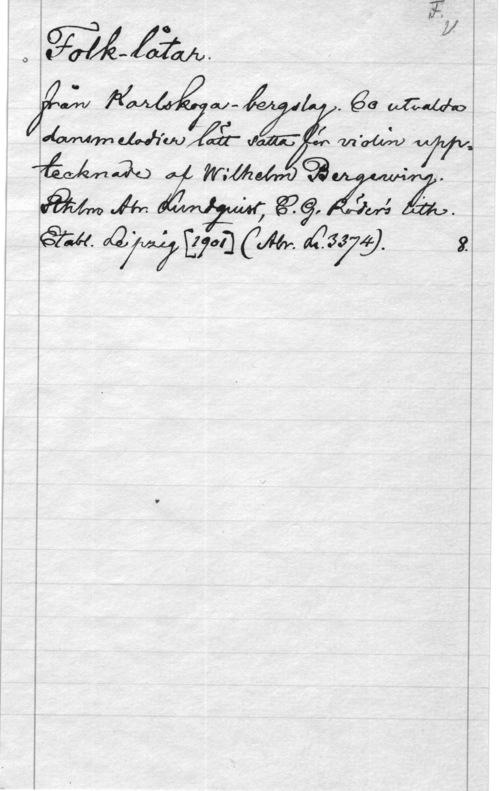 F.
V
Folk-låtar.
från Karlskoga-bergslag. 60 utvalda
dansmelodier lätt satta för violin upp-
tecknade af Wilhelm Bergewing.
Sthlm Abr. Lundquist, C. G. Röder's lith.
Etabl. Leipzig [1901] (Abr. L. 3374). 8.